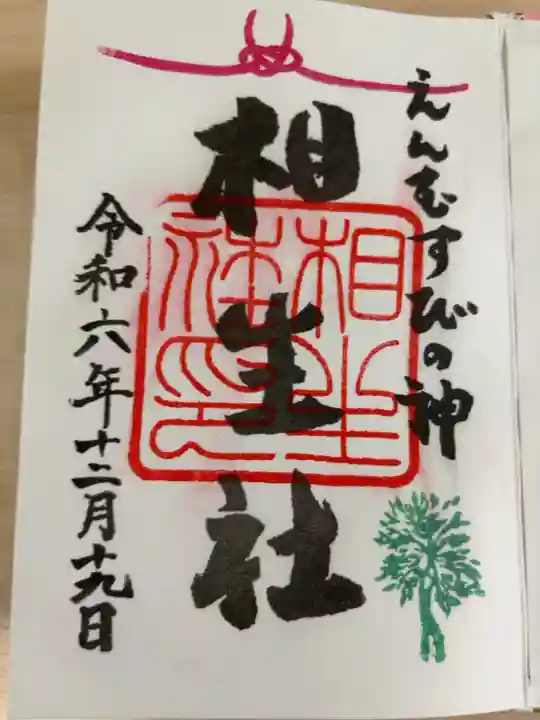 えんむすびの神
相生社
相生社印
令和六年十二月十九日